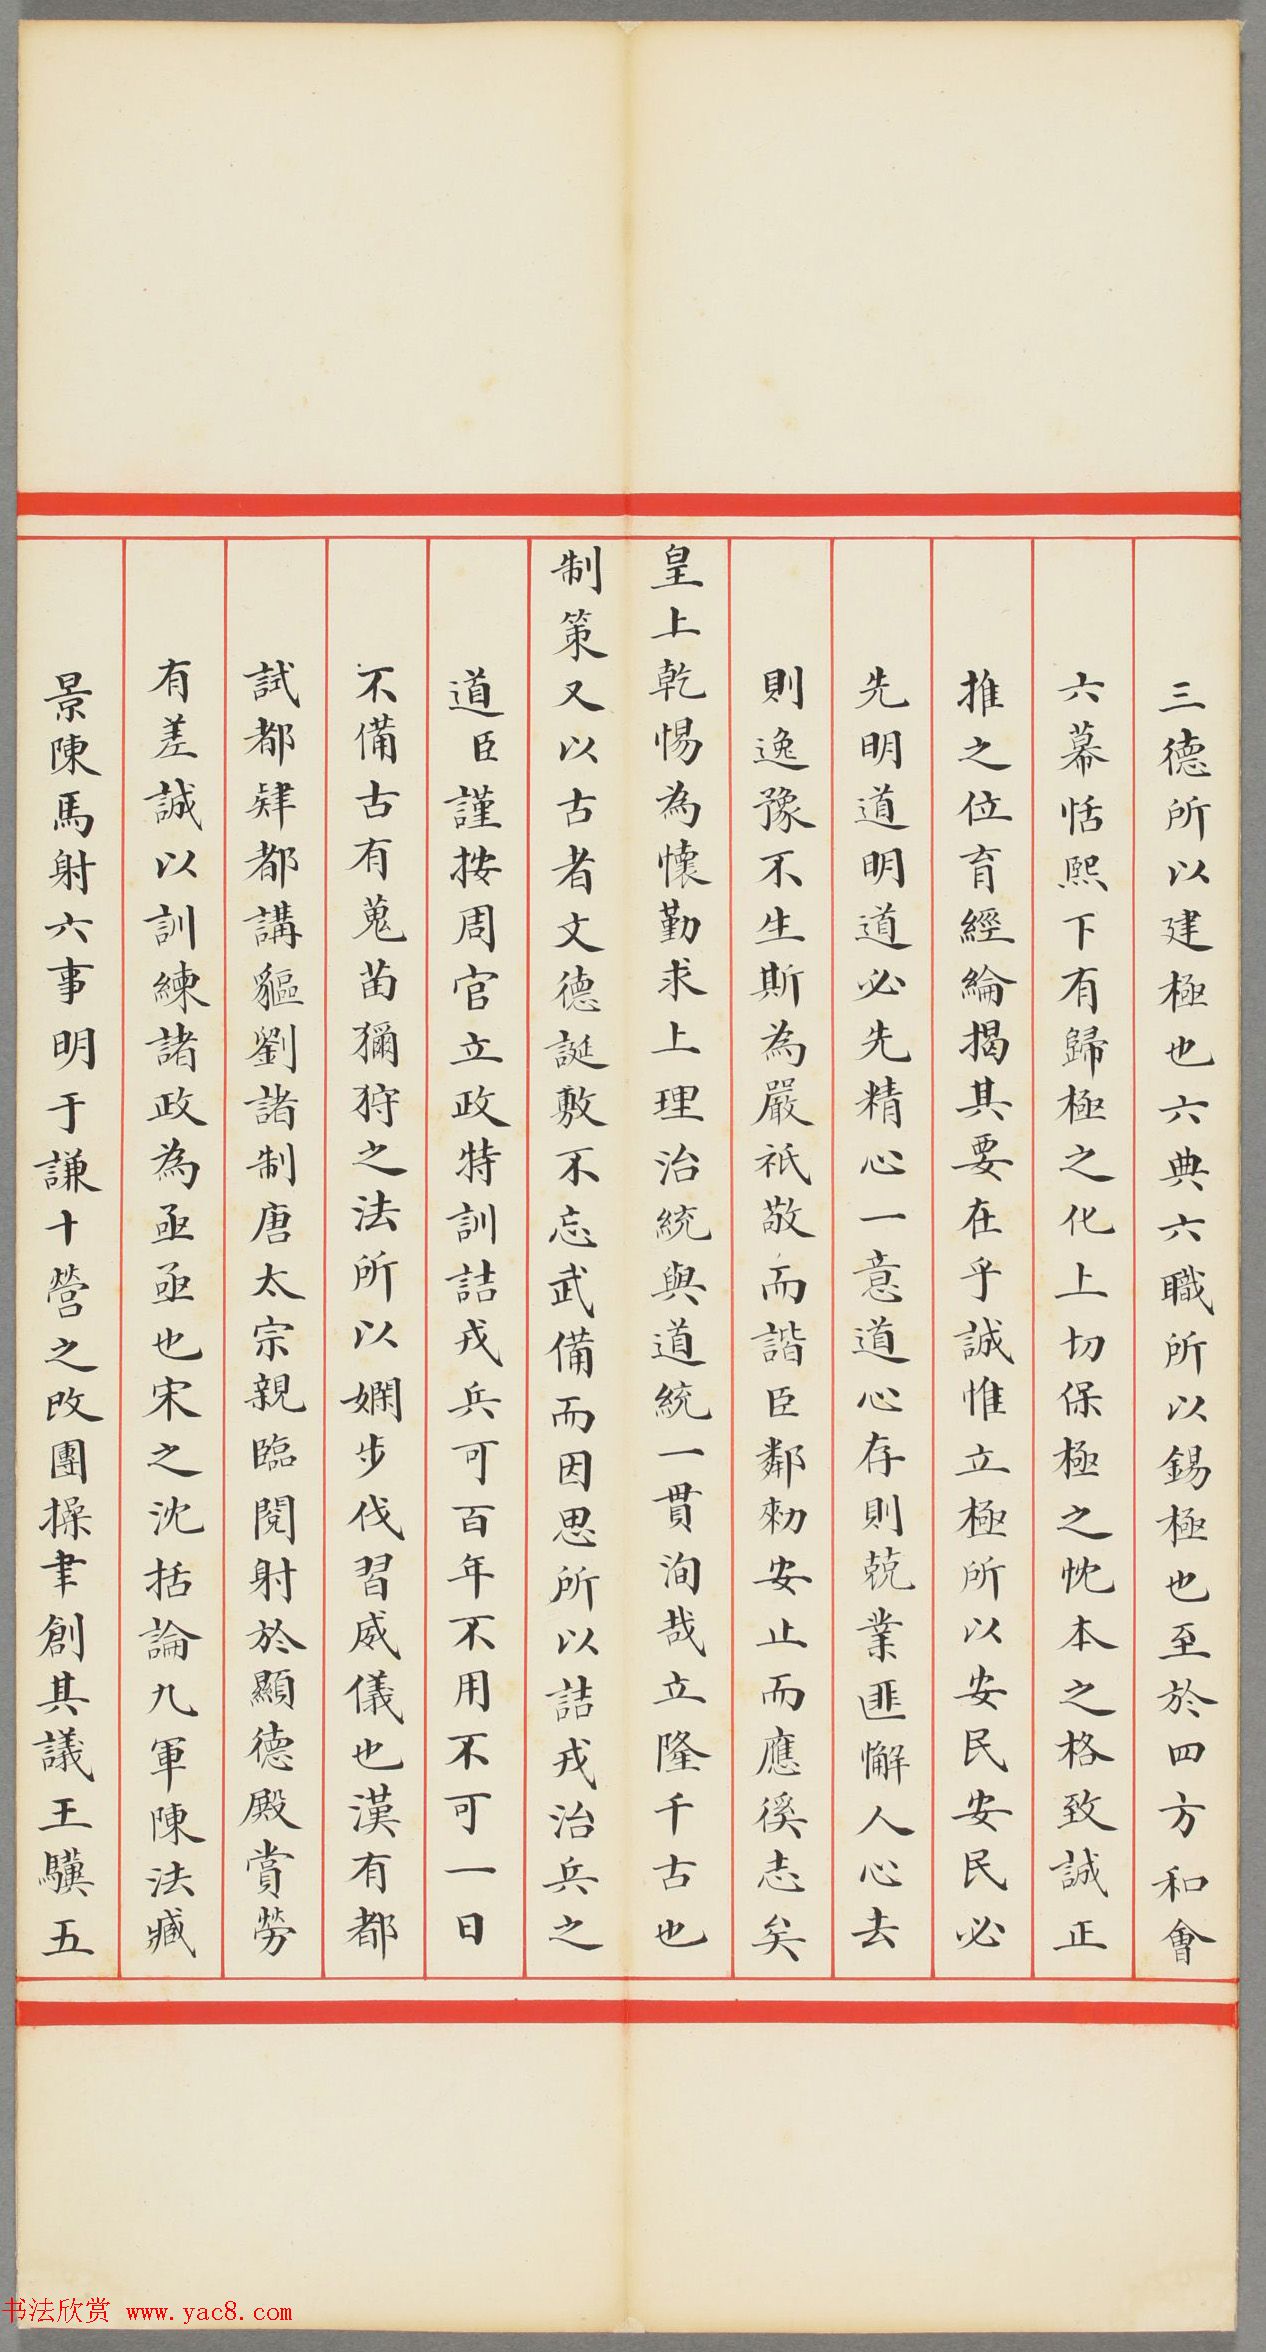 三德所以建極也六典六職所以錫極也至於四方和會
六幕恬熙下有歸極之化上切保極之忱本之格致誠正
推之位育經綸揭其要在乎誠惟立極所以安民安民必
先明道明道必先精心一意道心存則兢業匪懈人心去
則逸豫不生斯為嚴祇敬而諧臣鄰勑安止而應徯志矣
皇上乾惕為懷勤求上理治統與道統一貫洵哉立隆千古也
制策又以古者文德誕敷不忘武備而因思所以詰戎治兵之
道臣謹按周官立政特訓詰戎兵可百年不用不可一日
不備古有蒐苗獮狩之法所以嫻步伐習威儀也漢有都
試都肄都講貙劉諸制唐太宗親臨閱射於顯德殿賞勞
有差誠以訓練諸政為亟亟也宋之沈括論九軍陳法臧
景陳馬射六事明于謙十營之改團操聿創其議王驥五
书法欣赏 www.yac8.com